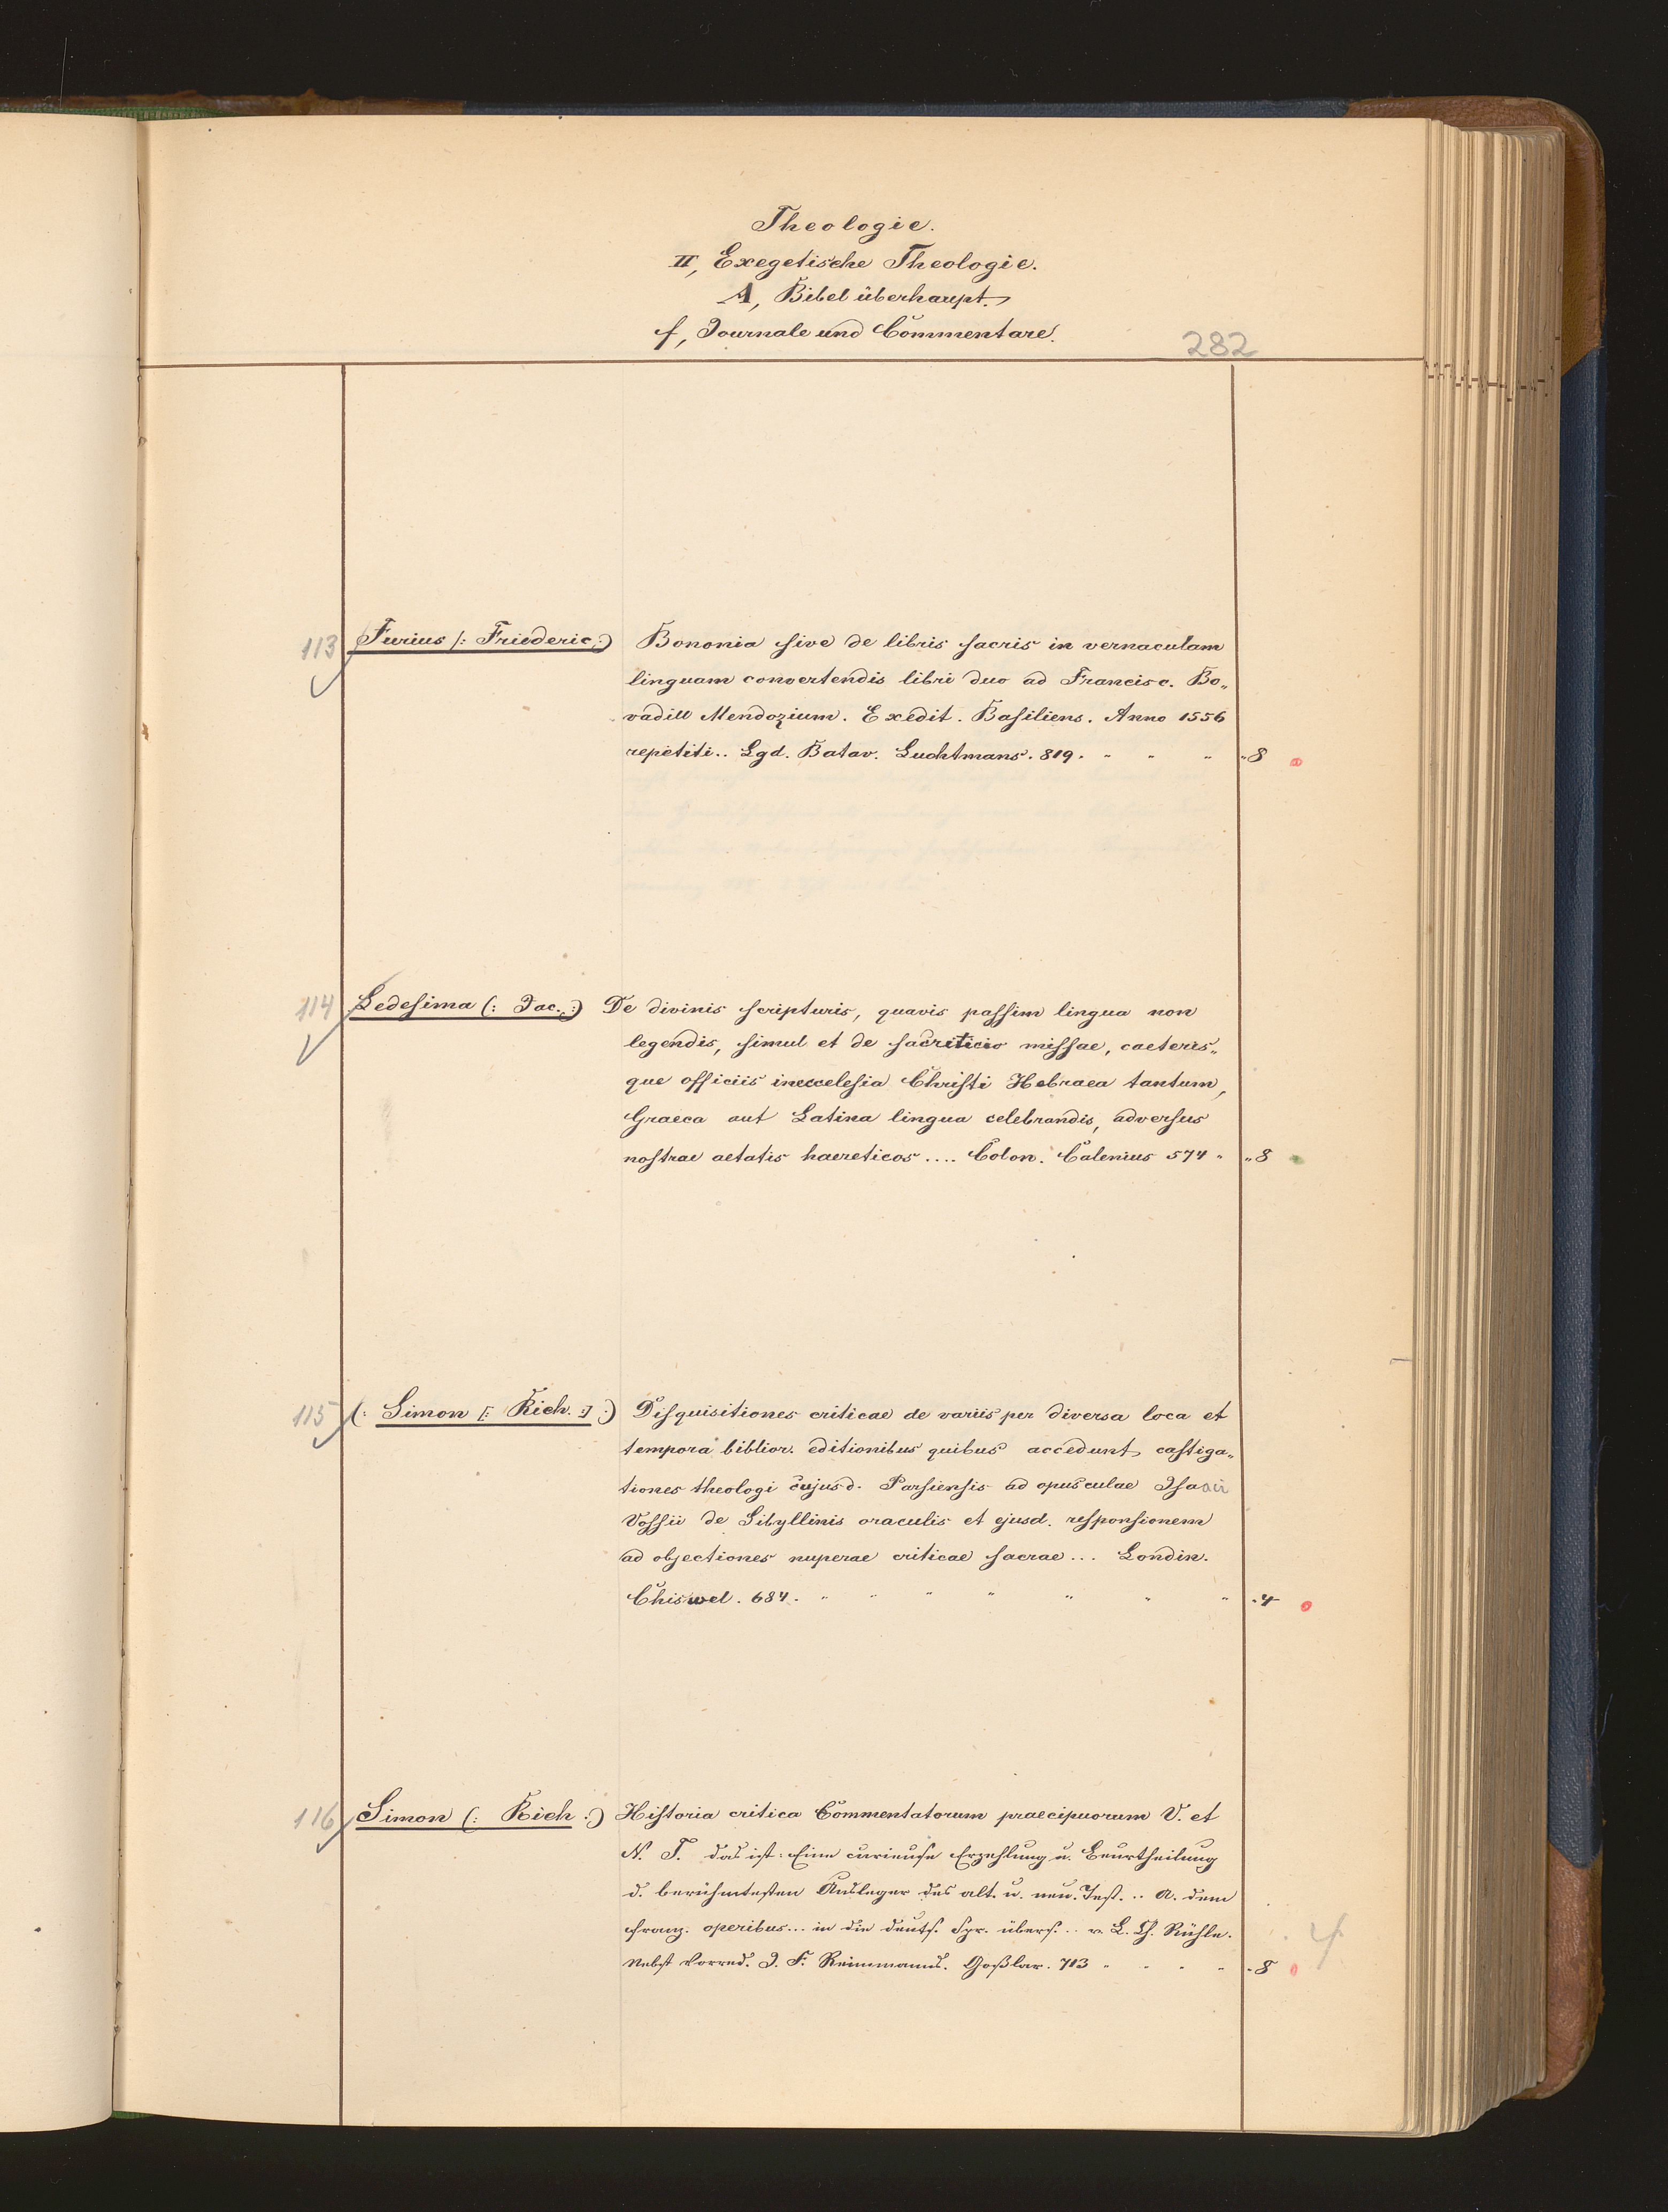 Theologie.
II, Exegetische Theologie.
A, Bibel überhaupt.
f, Journale und Commentare.
282
113 Furius (: Friederic :) Bononia sive de libris sacris in vernaculam
linguam convertendis libri duo ad Francisc. Bo„
vadill Mendozium. Ex edit. Basiliens. Anno 1556
repetiti.. Lgd. Batav. Luchtmans. 819. " " " "8
114 Ledesima (: Jac. :) De divinis scripturis, quavis passim lingua non
legendis, simul et de sacriticio missae, caeteris„
que officiis inecclesia Christi Hebraea tantum,
Graeca aut Latina lingua celebrandis, adversus
nostrae aetatis haereticos .... Colon. Calenius 574 " "8
115 (: Simon [: Rich. :] :) Disquisitiones criticae de variis per diversa loca et
tempora biblior. editionibus quibus accedunt castiga„
tiones theologi cujusd. Parsiensis ad opusculae Isaaci
Vossii de Sibyllinis oraculis et ejusd. responsionem
ad objectiones nuperae criticae sacrae ... Londin.
Chiswel. 684. " " " " " " " "4
116 Simon (: Rich :) Historia critica Commentatorum praecipuorum V. et
N. T. das ist: Eine curieuse Erzehlung u. Beurtheilung
d. berühmtesten Ausleger des alt. u. neu. Test. .. A. dem
Franz. operibus... in die deuts. Spr. übers. .. v. L. Ch. Rühle.
Nebst Vorred. J. F. Reimmanns. Goßlar. 713 " " " " "8
4